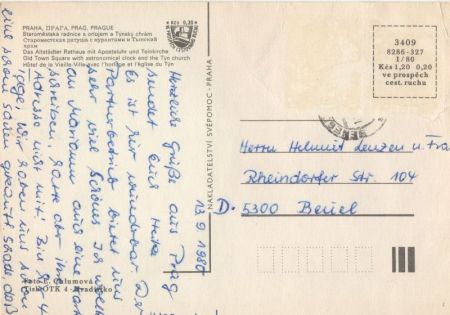 PRAHA, ПРАГА, PRAG, PRAGUE
Staroměstská radnice s orlojem a Týnský chrám
Староместская ратуша с курантами и Тынский
храм
Das Altstädter Rathaus mit Aposteluhr und Teinkirche
Old Town Square with astronomical clock and the Týn Church
Hôtel de la Vieille-Ville avec l'horloge et l'église du Týn
Kčs 0,30
3409
8286-327
1/80
Kčs 1,20 0,20
ve prospěch
cest. ruchu
NAKLADATELSTVÍ SVÉPOMOC - PRAHA
13.9.1980
Herzliche Grüße aus Prag
sendet Euch
Es ist hier wunderbar. Der
Partnerbetrieb bietet uns
sehr viel Schönes. Ich wollte
an Mariann auch eine Karte
schreiben, hatte aber ihre
Adresse nicht mit. Bin für 4
Tage, wir haben uns schon
eine schöne
Herrn Helmut Lenzen u. Frau
Rheindorfer Str. 104
D. 5300 Beuel
Foto E. Čalumová
Tisk OTK 4 - Hradištko